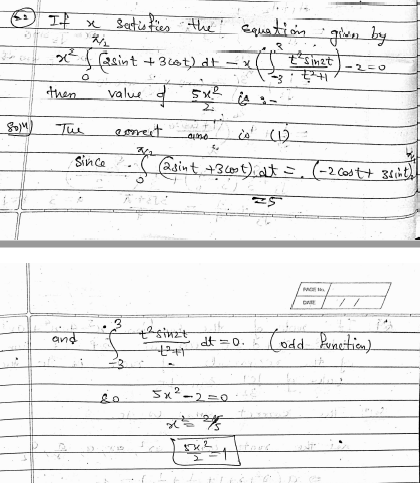 82) If x satisfies the equation given by
x² ∫₀^(π/2) (2sint + 3cost) dt − x ( ∫₋₃^3 t² sin2t / t²+1 ) − 2 = 0
then value of 5x²/2 is :-
Solⁿ) The correct ans is (1)
Since ∫₀^(π/2) (2sint + 3cost) dt = (−2cost + 3sint)
= 5
PAGE No.
DATE / /
and ∫₋₃^3 t² sin2t / t²+1 dt = 0. (odd function)
so 5x² − 2 = 0
x² = 2/5
5x²/2 = 1